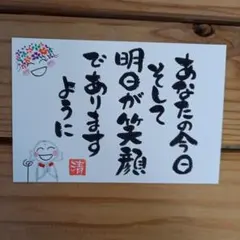 あなたの今日
そして
明日が笑顔
であります
ように
清